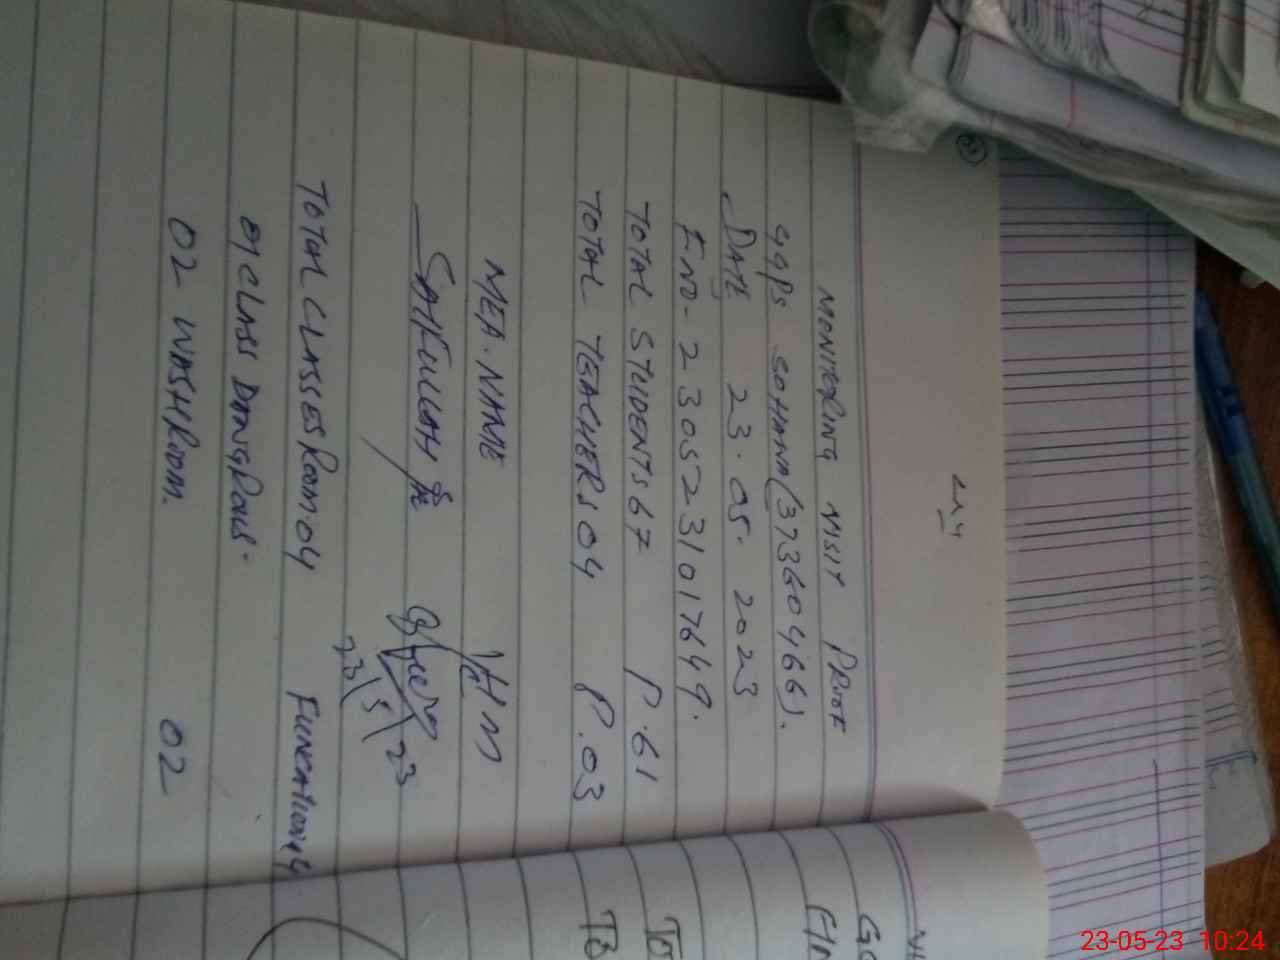 MONITERING VISIT PROOF
GGPS SOHANA (37360466).
DATE 23.05.2023
END- 2305231017649.
TOTAL STUDENTS 67 P.61
TOTAL TEACHERS 04 P.03
MEA.NAME H M
SAHFULLAH
23/5/23
TOTAL CLASSES ROOM 04 FUNCATIONAL
01 CLASS
02 WASHROOM. 02
23-05-23 10:24